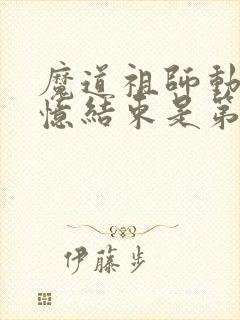 魔道祖師動
憶結束是第
伊藤步